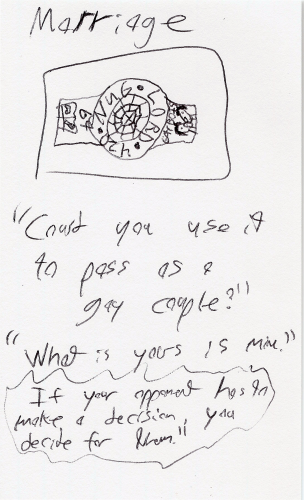 Marriage
"Coust you use it
to pass as a
gay couple?"
"What is yours is mine."
If your opponent has to
make a decision, you
decide for them."